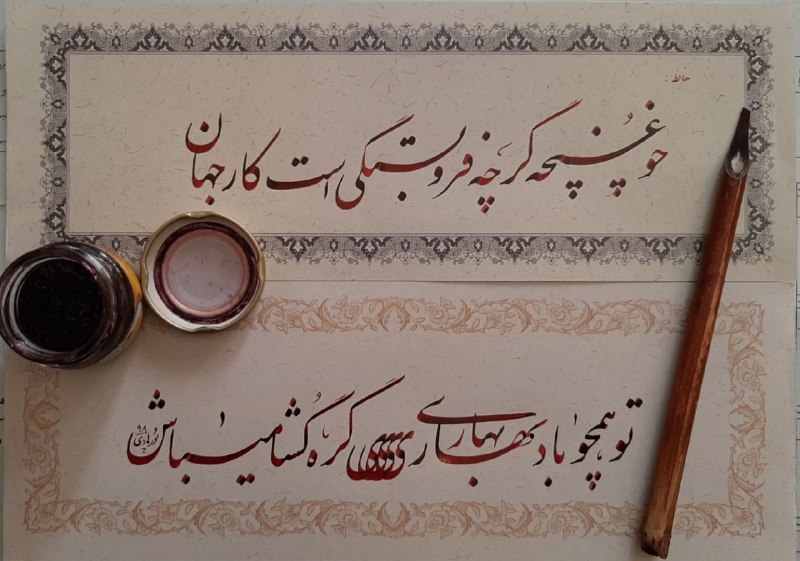 حافظ :
چو غنچه گرچه فروبستگی است کار جهان
تو همچو باد بهاری گره گشا میباش
۹۸